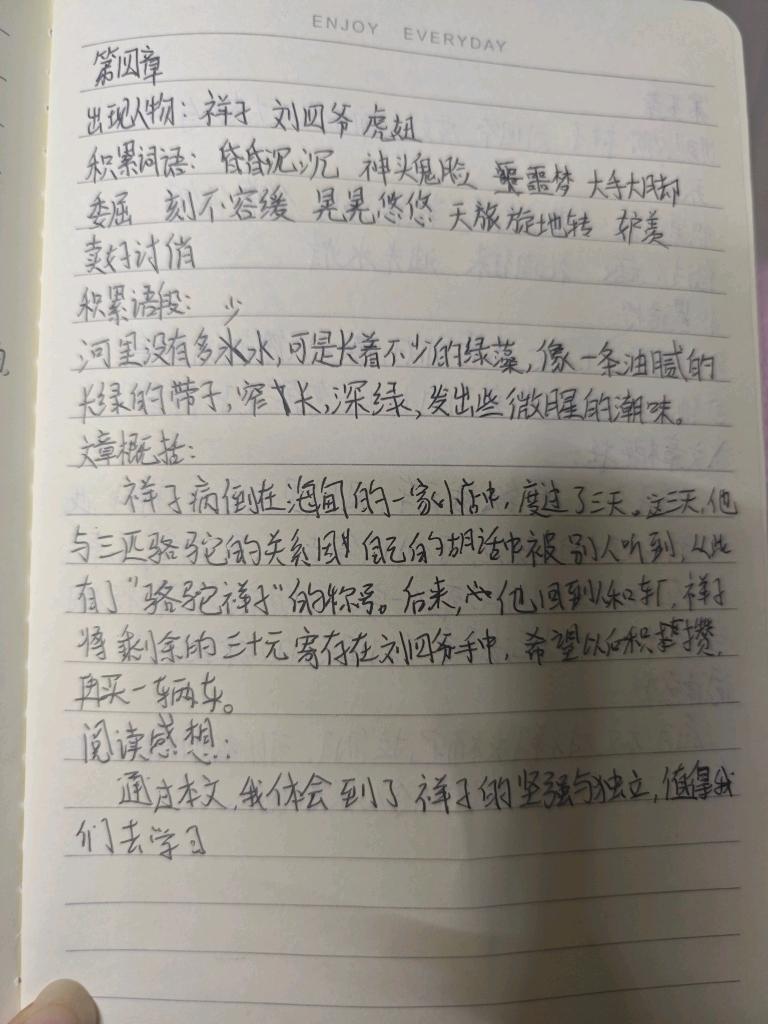 ENJOY EVERYDAY
第四章
出现人物：祥子 刘四爷 虎妞
积累词语：昏昏沉沉 神头鬼脸 噩梦 大手大脚
委屈 刻不容缓 晃晃悠悠 天旅旋地转 妒羡
卖好讨俏
积累语段： 少
河里没有多水水，可是长着不少的绿藻，像一条油腻的
长绿的带子，窄长，深绿，发出些微腥的潮味。
文章概括：
祥子病倒在海甸的一家小店中，度过了三天。这三天，他
与三匹骆驼的关系因自己的胡话中被别人听到，从此
有了“骆驼祥子”的称号。后来，他回到人和车厂，祥子
将剩余的三十元寄存在刘四爷手中，希望以后积攒，
再买一辆车。
阅读感想：
通过本文，我体会到了祥子的坚强与独立，值得我
们去学习